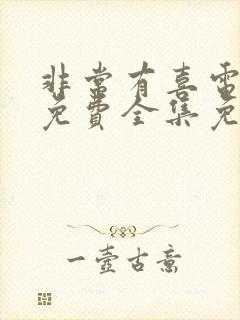 非常有喜電
免費全集免
一壺古意